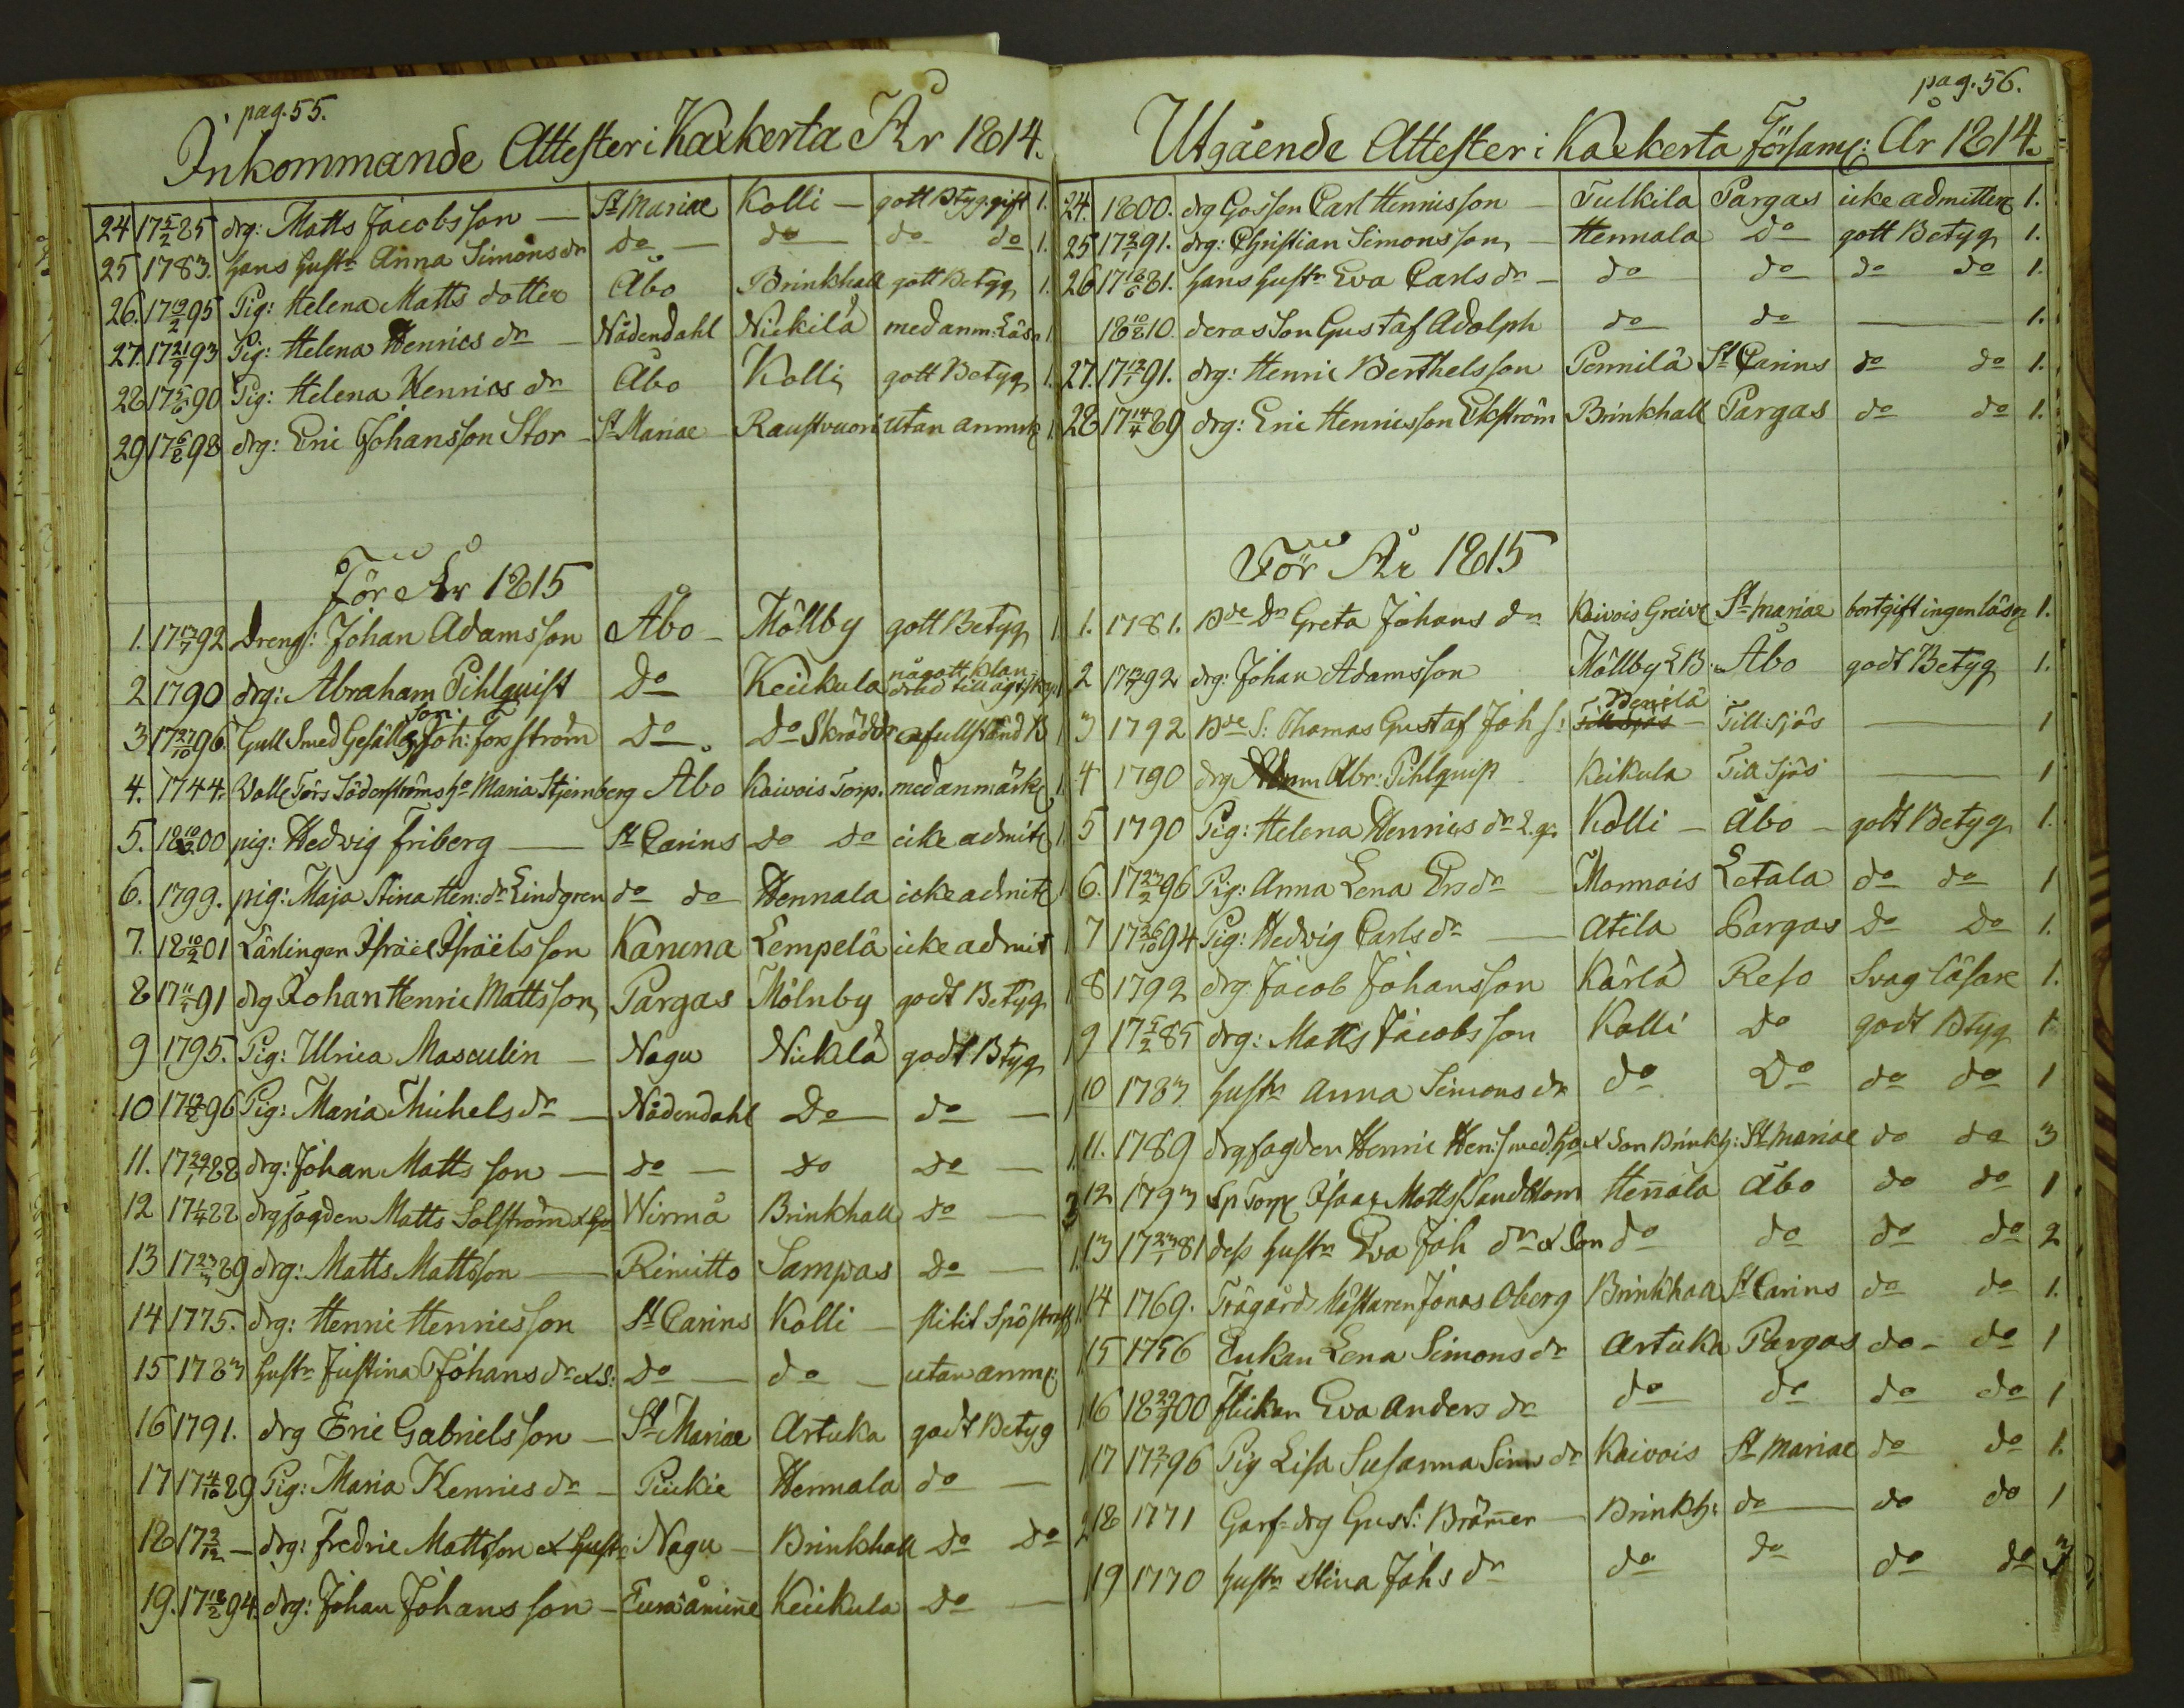 pag. 55.
Inkommande Attester i Kaxkerta År 1814.
24 17 5/2 85 drg: Matts Jacobsson — St Mariae Kolli — gott Btyg. gift 1.
25 1783. hans hustr Anna Simons dr do — do do do 1.
26. 17 19/2 95 Pig: Helena Matts dotter Åbo Brinkhall gott Betyg 1.
27. 17 21/9 93 Pig: Helena Henrics dr — Nådendahl Nickilä med anm: Läsn 1
28 17 5/6 90 Pig: Helena Henrics dr Åbo Kolli gott Betyg 1.
29 17 6/8 98 drg: Eric Johansson Stor — St Mariae Raustvuori utan anmrk 1.
För År 1815
1. 17 17/7 92 Dreng: Johan Adamsson Åbo — Möllby gott Betyg 1
2 1790 drg: Abraham Pihlquist Do Keickula något klan-
drad till
3 17 27/10 96. Gull Smed Gesäll Joh: Forsström Do Do Skräddr ofullständ B
son:
4. 1744. Walle Förs Söderströms ho Maria Stjernberg Åbo Kaivois Torp. med anmärk 1.
5. 18 10/2 00 pig: Hedwig Friberg — St Carins do do icke admit 1.
6. 1799. pig: Maja Stina Hen: dr Lindgren do do Hennala icke admit 1.
7. 18 10/2 01 Lärlingen Israël Israëlsson Karuna Lempelä icke admit 1
8 17 11/7 91 drg Johan Henric Mattsson Pargas Mölnby godt Betyg 1
9 1795. Pig: Ulrica Masculin — Nagu Nicklä godt Btyg 1
10 17 17/8 96 Pig: Maria Michels dr — Nådendahl Do do — 1
11. 17 29/7 88 drg: Johan Mattsson — do — do do — 1.
12 17 4/4 88 drgfogden Matts Solström & ho Wirmå Brinkhall do — 3
13 17 23/3 89 drg: Matts Mattsson — Rimitto Sampas do — 1.
14 1775. drg: Henric Henricsson St Carins Kolli — slitit Spöstraff 1.
15 1783 hustr Justina Johans dr & S: Do — do — utan anm:
16 1791. drg Eric Gabrielsson — St Mariae Artuka godt Betyg 1
17 17 4/10 89 Pig: Maria Henrics dr — Piickie Hennala do — 1
18 17 2/12 — drg: Fredric Mattsson & hustr Nagu — Brinkhall do do 2
19. 17 18/2 94. drg: Johan Johansson — Euraåminne Keickula do —
pag. 56.
Utgående Attester i Kaxkerta Församl: År 1814.
24. 1800. drg Gossen Carl Henricsson — Tulkila Pargas icke admitter 1.
25 17 9/1 91. drg: Christian Simonsson — Hennala do gott Betyg 1.
26 17 18/6 81. hans hustr Eva Carls dr — do do do do 1.
18 10/8 10. deras Son Gustaf Adolph do do — 1.
27. 17 12/1 91. drg: Henric Berthelsson Pennilä St Carins do do 1.
28 17 14/4 89 drg: Eric Henricsson Ekström Brinkhall Pargas do do 1.
För År 1815
1. 1781. Bde Dr Greta Johans dr Kaivois Greive St Mariae bortgift ingen läsn 1.
2 17 17/7 92 drg: Johan Adamsson Möllby LB. Åbo godt Betyg 1.
3 1792 Bde S: Thomas Gustaf Joh s: Penilä Till sjös — 1
4 1790 drg Abr: Pihlquist Keikula Till Sjös — 1
5 1790 Pig: Helena Henrics dr L. gr Kolli — Åbo — godt Betyg 1.
6. 17 23/2 96 Pig: Anna Lena Ers dr — Monnois Letala do do 1
7 17 26/10 94 Pig: Hedvig Carls dr — Atila Pargas do do 1.
8 1792 drg: Jacob Johansson Kärlä Reso Svag läsare 1.
9 17 5/2 85 drg: Matts Jacobsson Kolli do godt Btyg 1
10 1783 hustr Anna Simons dr do Do do do 1
11. 1789 drgfogden Henric Hen: smed ho & Son Brinkh: St Mariae do do 3
12 1793 Sp Torp Isaac Matts Sandblom Hennala Åbo do do 1
13 17 23/7 81 dess hustr Eva Joh dr & Son do do do do 2
14 1769. Trägård Mästaren Jonas Oberg Brinkhall St Carins do do 1.
15 1756 Enkan Lena Simons dr Artuka Pargas do — do 1
16 18 29/7 00 flickan Eva Anders dr do do do do 1
17 17 2/7 96 Pig Lisa Susanna Sims dr Kaivois St Mariae do do 1.
18 1771 Garf-drg Gust: Brämer — Brinkh: do — do do 1
19 1770 hustr Stina Johs dr do do do do 3